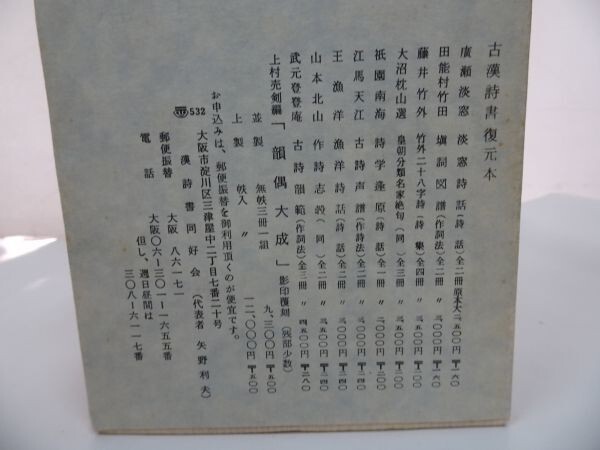 古漢詩書復元本
廣瀬淡窓 淡窓詩話(詩話)全二冊原本大二、五〇〇円〒一六〇
田能村竹田 塡詞図譜(作詞法)全二冊 〃 三、〇〇〇円〒一六〇
藤井竹外 竹外二十八字詩(詩集)全四冊 〃 三、五〇〇円〒二〇〇
大沼枕山選 皇朝分類名家絶句(同)全三冊 〃 三、五〇〇円〒二〇〇
祇園南海 詩学逢原(詩話)全一冊 〃 二、〇〇〇円〒二〇〇
江馬天江 古詩声譜(作詩法)全二冊 〃 三、〇〇〇円〒二四〇
王漁洋 漁洋詩話(詩話)全二冊 〃 三、〇〇〇円〒二四〇
山本北山 作詩志彀(同)全二冊 〃 三、五〇〇円〒二四〇
武元登登庵 古詩韻範(作詞法)全三冊 〃 四、五〇〇円〒二八〇
上村売剣編「韻偶大成」影印復刻(残部少数)
並製 無帙三冊一組 九、三〇〇円〒五〇〇
上製 帙入 〃 一二、〇〇〇円〒五〇〇
お申込みは、郵便振替を御利用頂くのが便宜です。
〒532 大阪市淀川区三津屋中二丁目七番二十号
漢詩書同好会(代表者 矢野利夫)
郵便振替 大阪 八六一七一
電話 大阪〇六―三〇一―一六五五番
但し、週日昼間は
三〇八―六一一七番